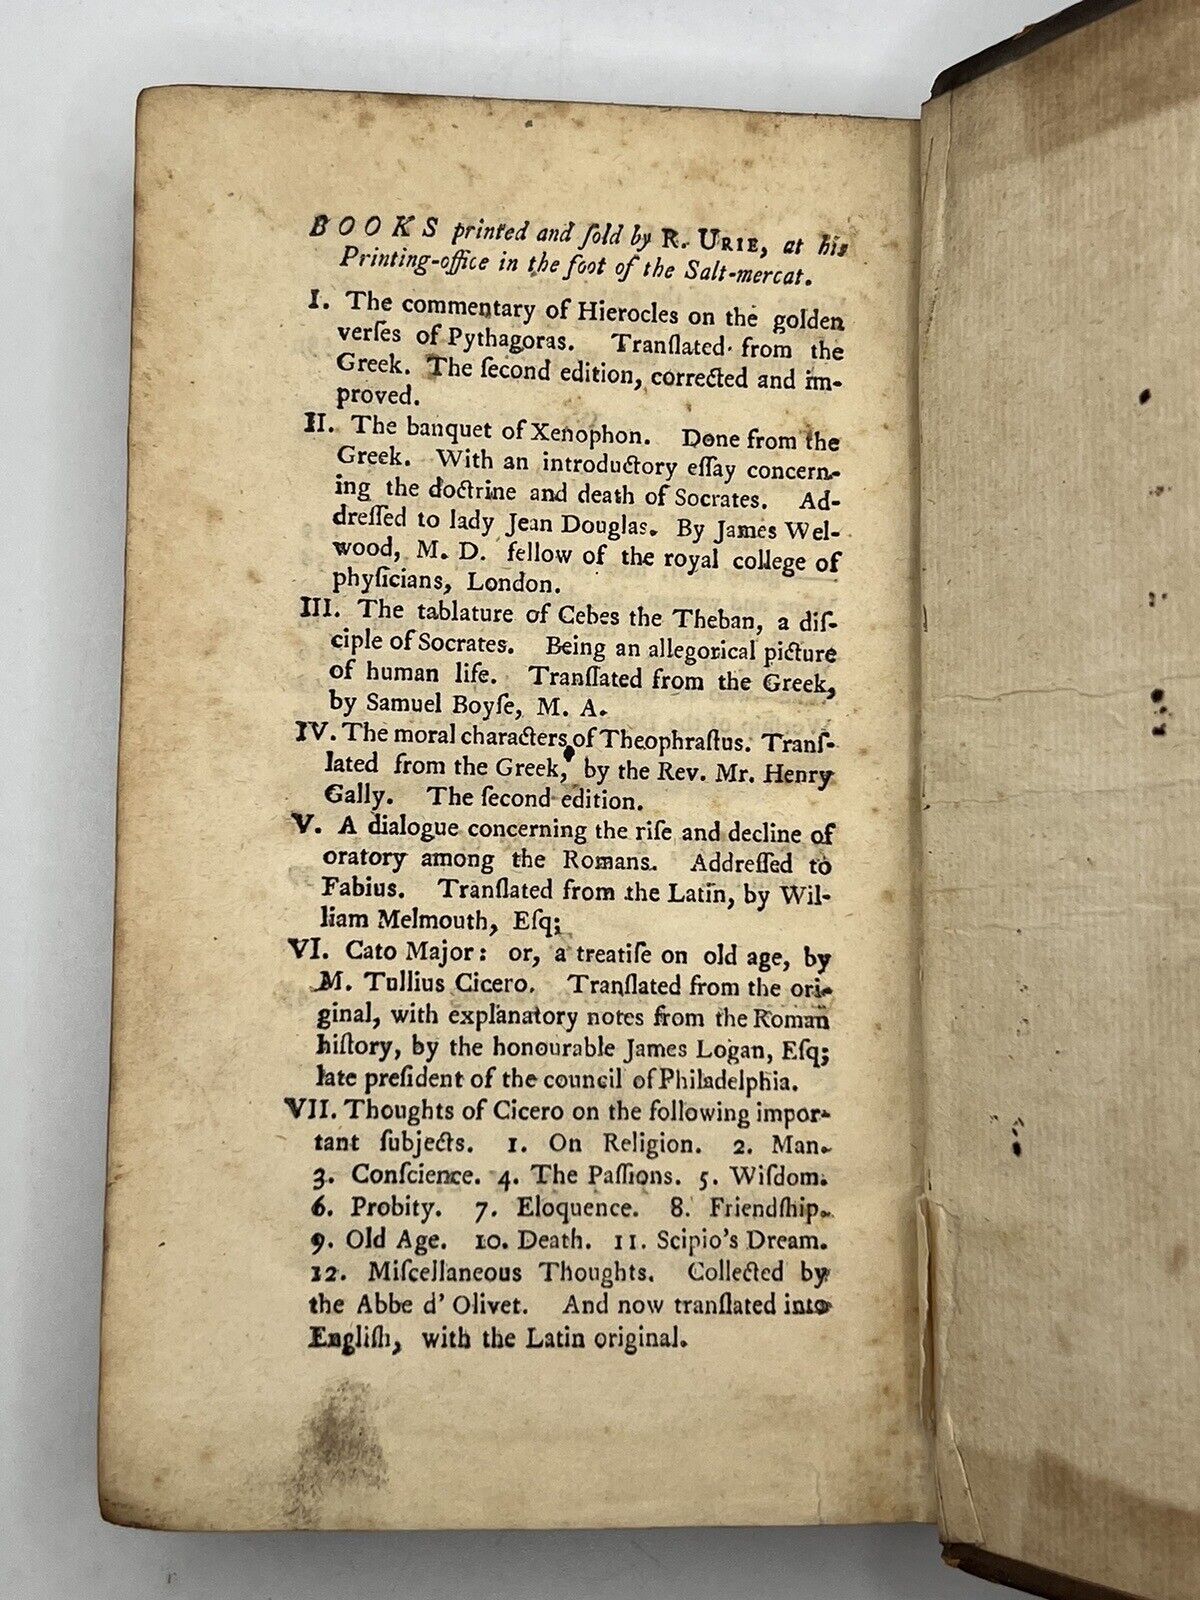 BOOKS printed and ſold by R. URIE, at his
Printing-office in the foot of the Salt-mercat.
I. The commentary of Hierocles on the golden
verſes of Pythagoras. Tranſlated from the
Greek. The ſecond edition, corrected and im-
proved.
II. The banquet of Xenophon. Done from the
Greek. With an introductory eſſay concern-
ing the doctrine and death of Socrates. Ad-
dreſſed to lady Jean Douglas. By James Wel-
wood, M. D. fellow of the royal college of
phyſicians, London.
III. The tablature of Cebes the Theban, a diſ-
ciple of Socrates. Being an allegorical picture
of human life. Tranſlated from the Greek,
by Samuel Boyſe, M. A.
IV. The moral characters of Theophraſtus. Tranſ-
lated from the Greek, by the Rev. Mr. Henry
Gally. The ſecond edition.
V. A dialogue concerning the riſe and decline of
oratory among the Romans. Addreſſed to
Fabius. Tranſlated from the Latin, by Wil-
liam Melmouth, Eſq;
VI. Cato Major: or, a treatiſe on old age, by
M. Tullius Cicero. Tranſlated from the ori-
ginal, with explanatory notes from the Roman
hiſtory, by the honourable James Logan, Eſq;
late preſident of the council of Philadelphia.
VII. Thoughts of Cicero on the following impor-
tant ſubjects. 1. On Religion. 2. Man.
3. Conſcience. 4. The Paſſions. 5. Wiſdom.
6. Probity. 7. Eloquence. 8. Friendſhip.
9. Old Age. 10. Death. 11. Scipio's Dream.
12. Miſcellaneous Thoughts. Collected by
the Abbe d' Olivet. And now tranſlated into
Engliſh, with the Latin original.